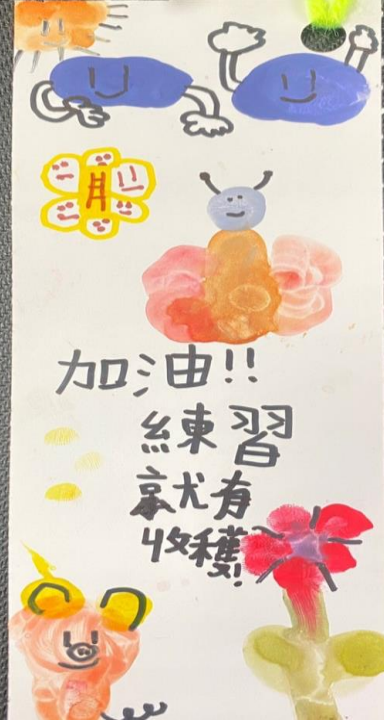 加油!!
練習
就有
收穫!